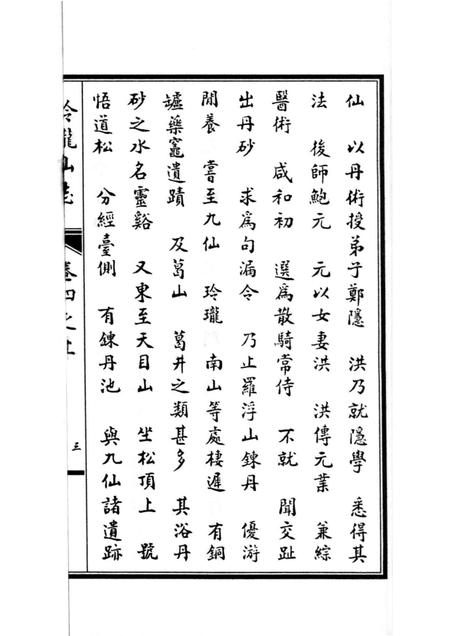 仙 以丹術授弟子鄭隱 洪乃就隱學 悉得其
法 後師鮑元 元以女妻洪 洪傳元業 兼綜
醫術 咸和初 選為散騎常侍 不就 聞交趾
出丹砂 求為句漏令 乃止羅浮山鍊丹 優游
閒養 嘗至九仙 玲瓏 南山等處棲遲 有銅
罏藥竈遺蹟 及葛山 葛井之類甚多 其浴丹
砂之水名靈谿 又東至天目山 坐松頂上 號
悟道松 分經臺側 有鍊丹池 與九仙諸遺跡
玲瓏山志 卷四之上 三